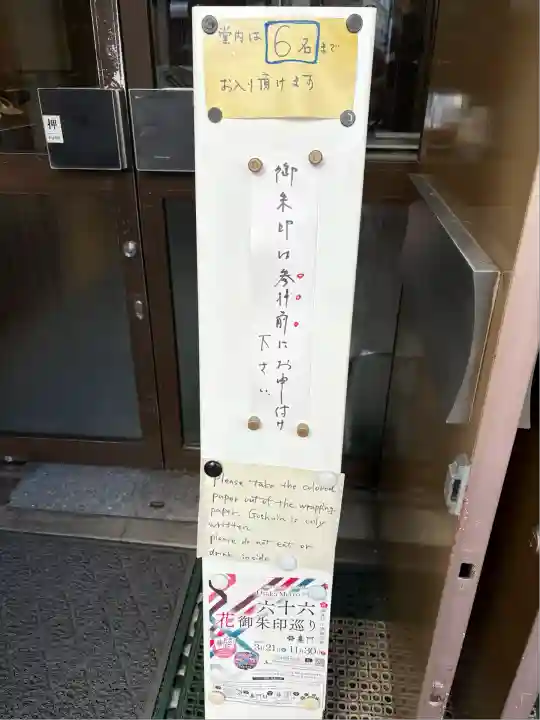 堂内は6名まで
お入り頂けます
押
御朱印は参拝前にお申付け
下さい
Please take the colored
paper out of the wrapping
paper. Goshuin is only
written
please do not eat or
drink inside
Osaka Metro
六十六
花御朱印巡り
3月21日
11月30日